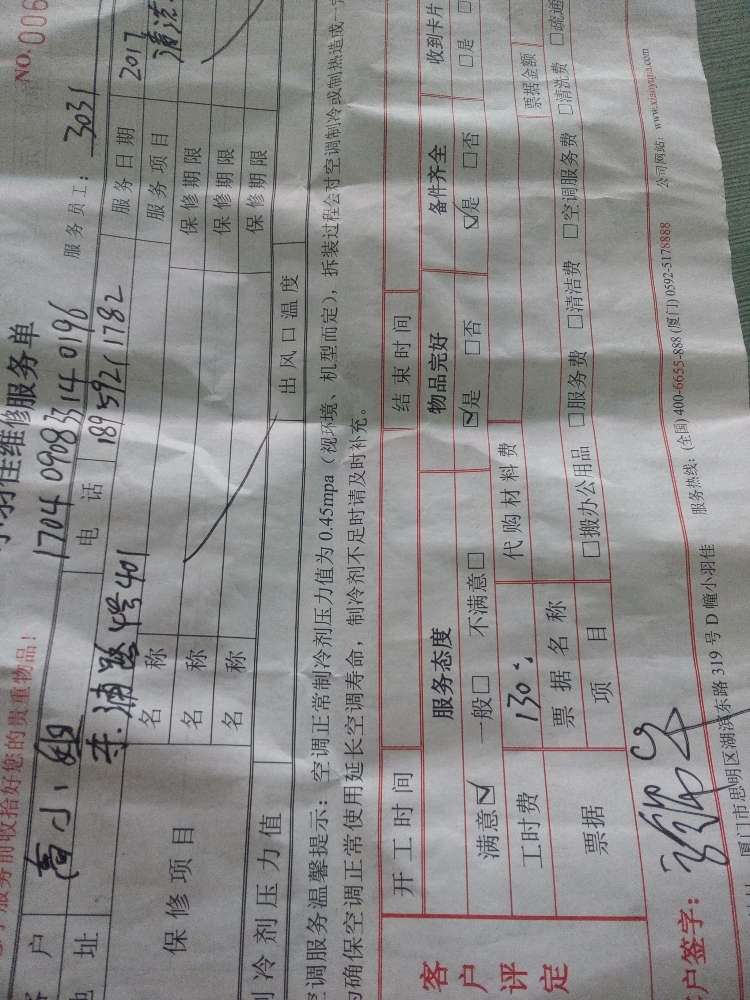 NO.006
小羽佳维修服务单
服务前收拾好您的贵重物品！
17040908314 0196
服务员工：3031
户 高小姐 电话 18959211782 服务日期 2017
址 东浦路 号401 服务项目 清洗
保修项目 名称 保修期限
名称 保修期限
名称 保修期限
制冷剂压力值 出风口温度
空调服务温馨提示：空调正常制冷剂压力值为0.45mpa（视环境、机型而定），拆装过程会对空调制冷或制热造成一
为确保空调正常使用延长空调寿命，制冷剂不足时请及时补充。
开工时间 结束时间
客户评定 服务态度 物品完好 备件齐全 收到卡片
满意☑ 一般□ 不满意□ ☑是 □否 ☑是 □否 □是
工时费 130 代购材料费 票据金额
票据 票据名称
项目 □搬办公用品 □服务费 □清洁费 □空调服务费 □清洗费 □疏通
户签字：
厦门市思明区湖滨东路319号D幢小羽佳 服务热线：(全国)400-6655-888 (厦门)0592-5178888 公司网站：www.xiaoyujia.com